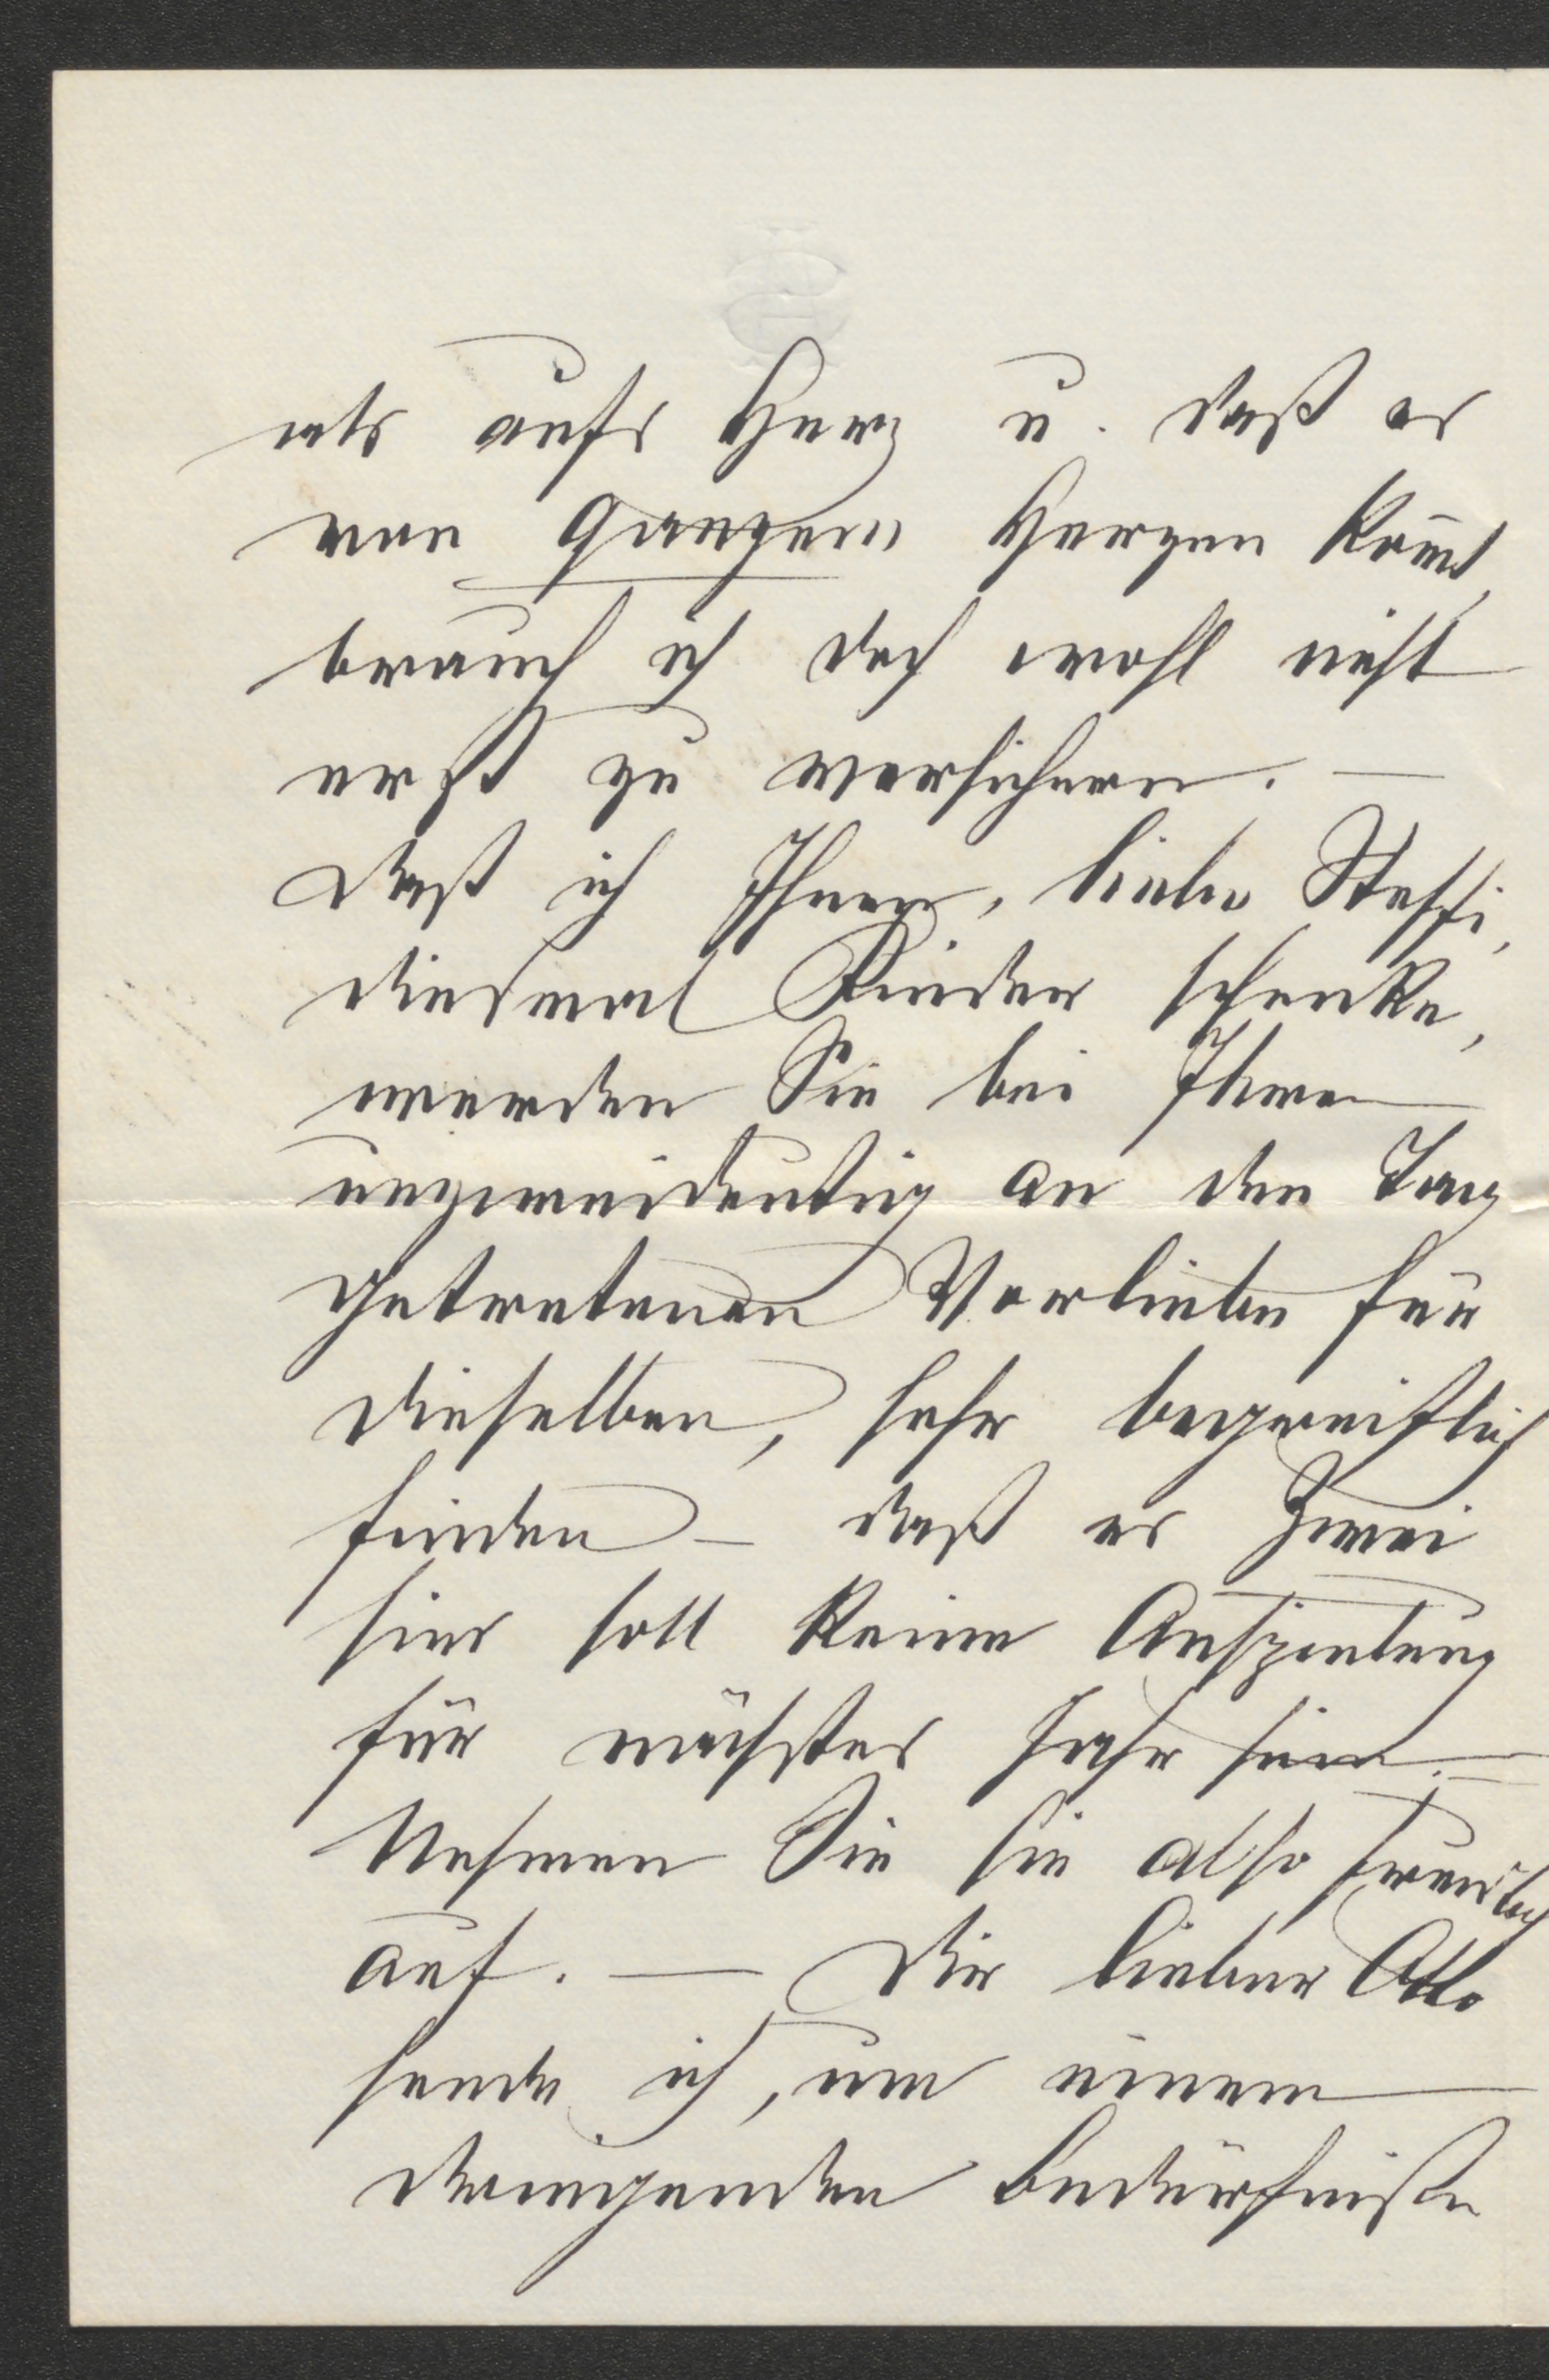 als aufs Herz u. daß es
von ganzem Herzen kom̅t,
brauch ich doch wohl nicht
erst zu versichern. —
Daß ich Ihnen, liebe Steffi,
diesmal Kinder schenke,
werden Sie bei Ihrer
unzweideutig an den Tag
getretenen Vorliebe für
dieselben, sehr begreiflich
finden – daß es zwei
sind soll keine Anspielung
für nächstes Jahr sein. —
Nehmen Sie sie also freundlich
auf. — Dir lieber Otto
sende ich, um einem
dringenden Bedürfniße